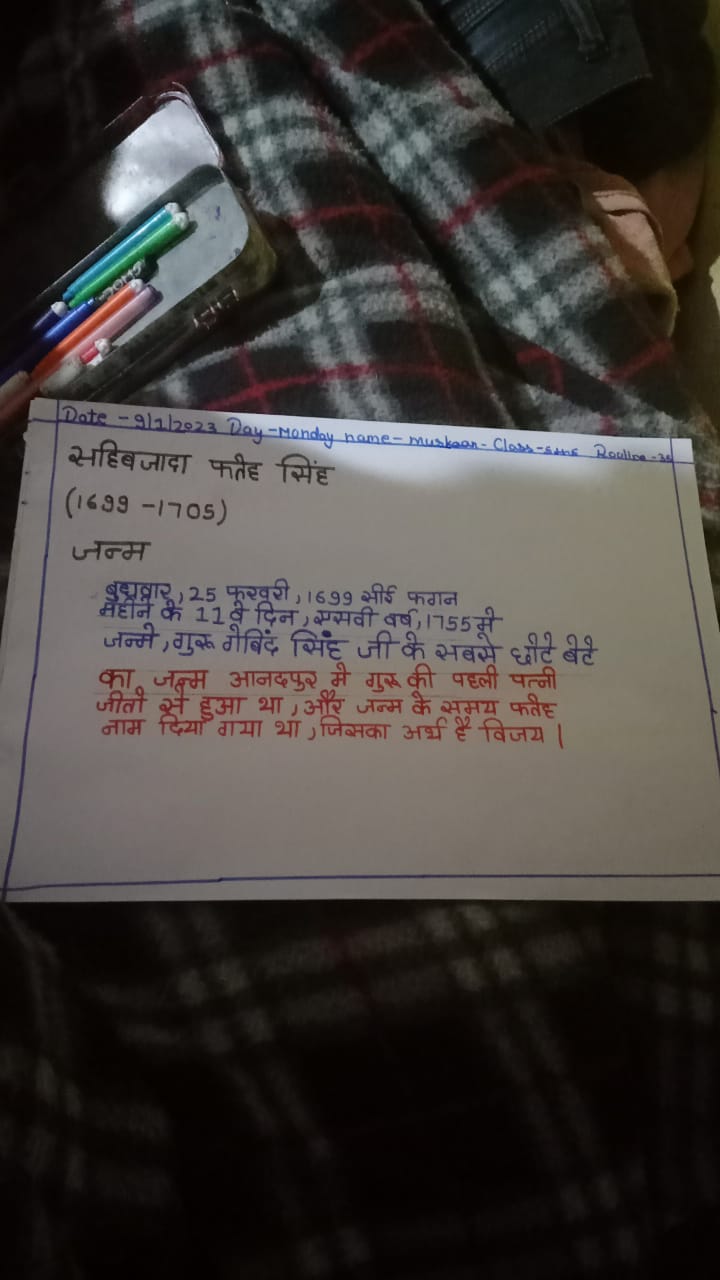 Date - 9/1/2023 Day - Monday name - muskaan - Class - Roll no - 35
सहिबजादा फतेह सिंह
(1699 - 1705)
जन्म
बुधवार, 25 फरवरी, 1699 सीई फगन
महीने के 11 वे दिन, एसवी वर्ष, 1755 मे
जन्मे, गुरू गोबिंद सिंह जी के सबसे छोटे बेटे
का जन्म आनदपुर मे गुरू की पहली पत्नी
जीतो से हुआ था, और जन्म के समय फतेह
नाम दिया गया था, जिसका अर्थ है विजय।